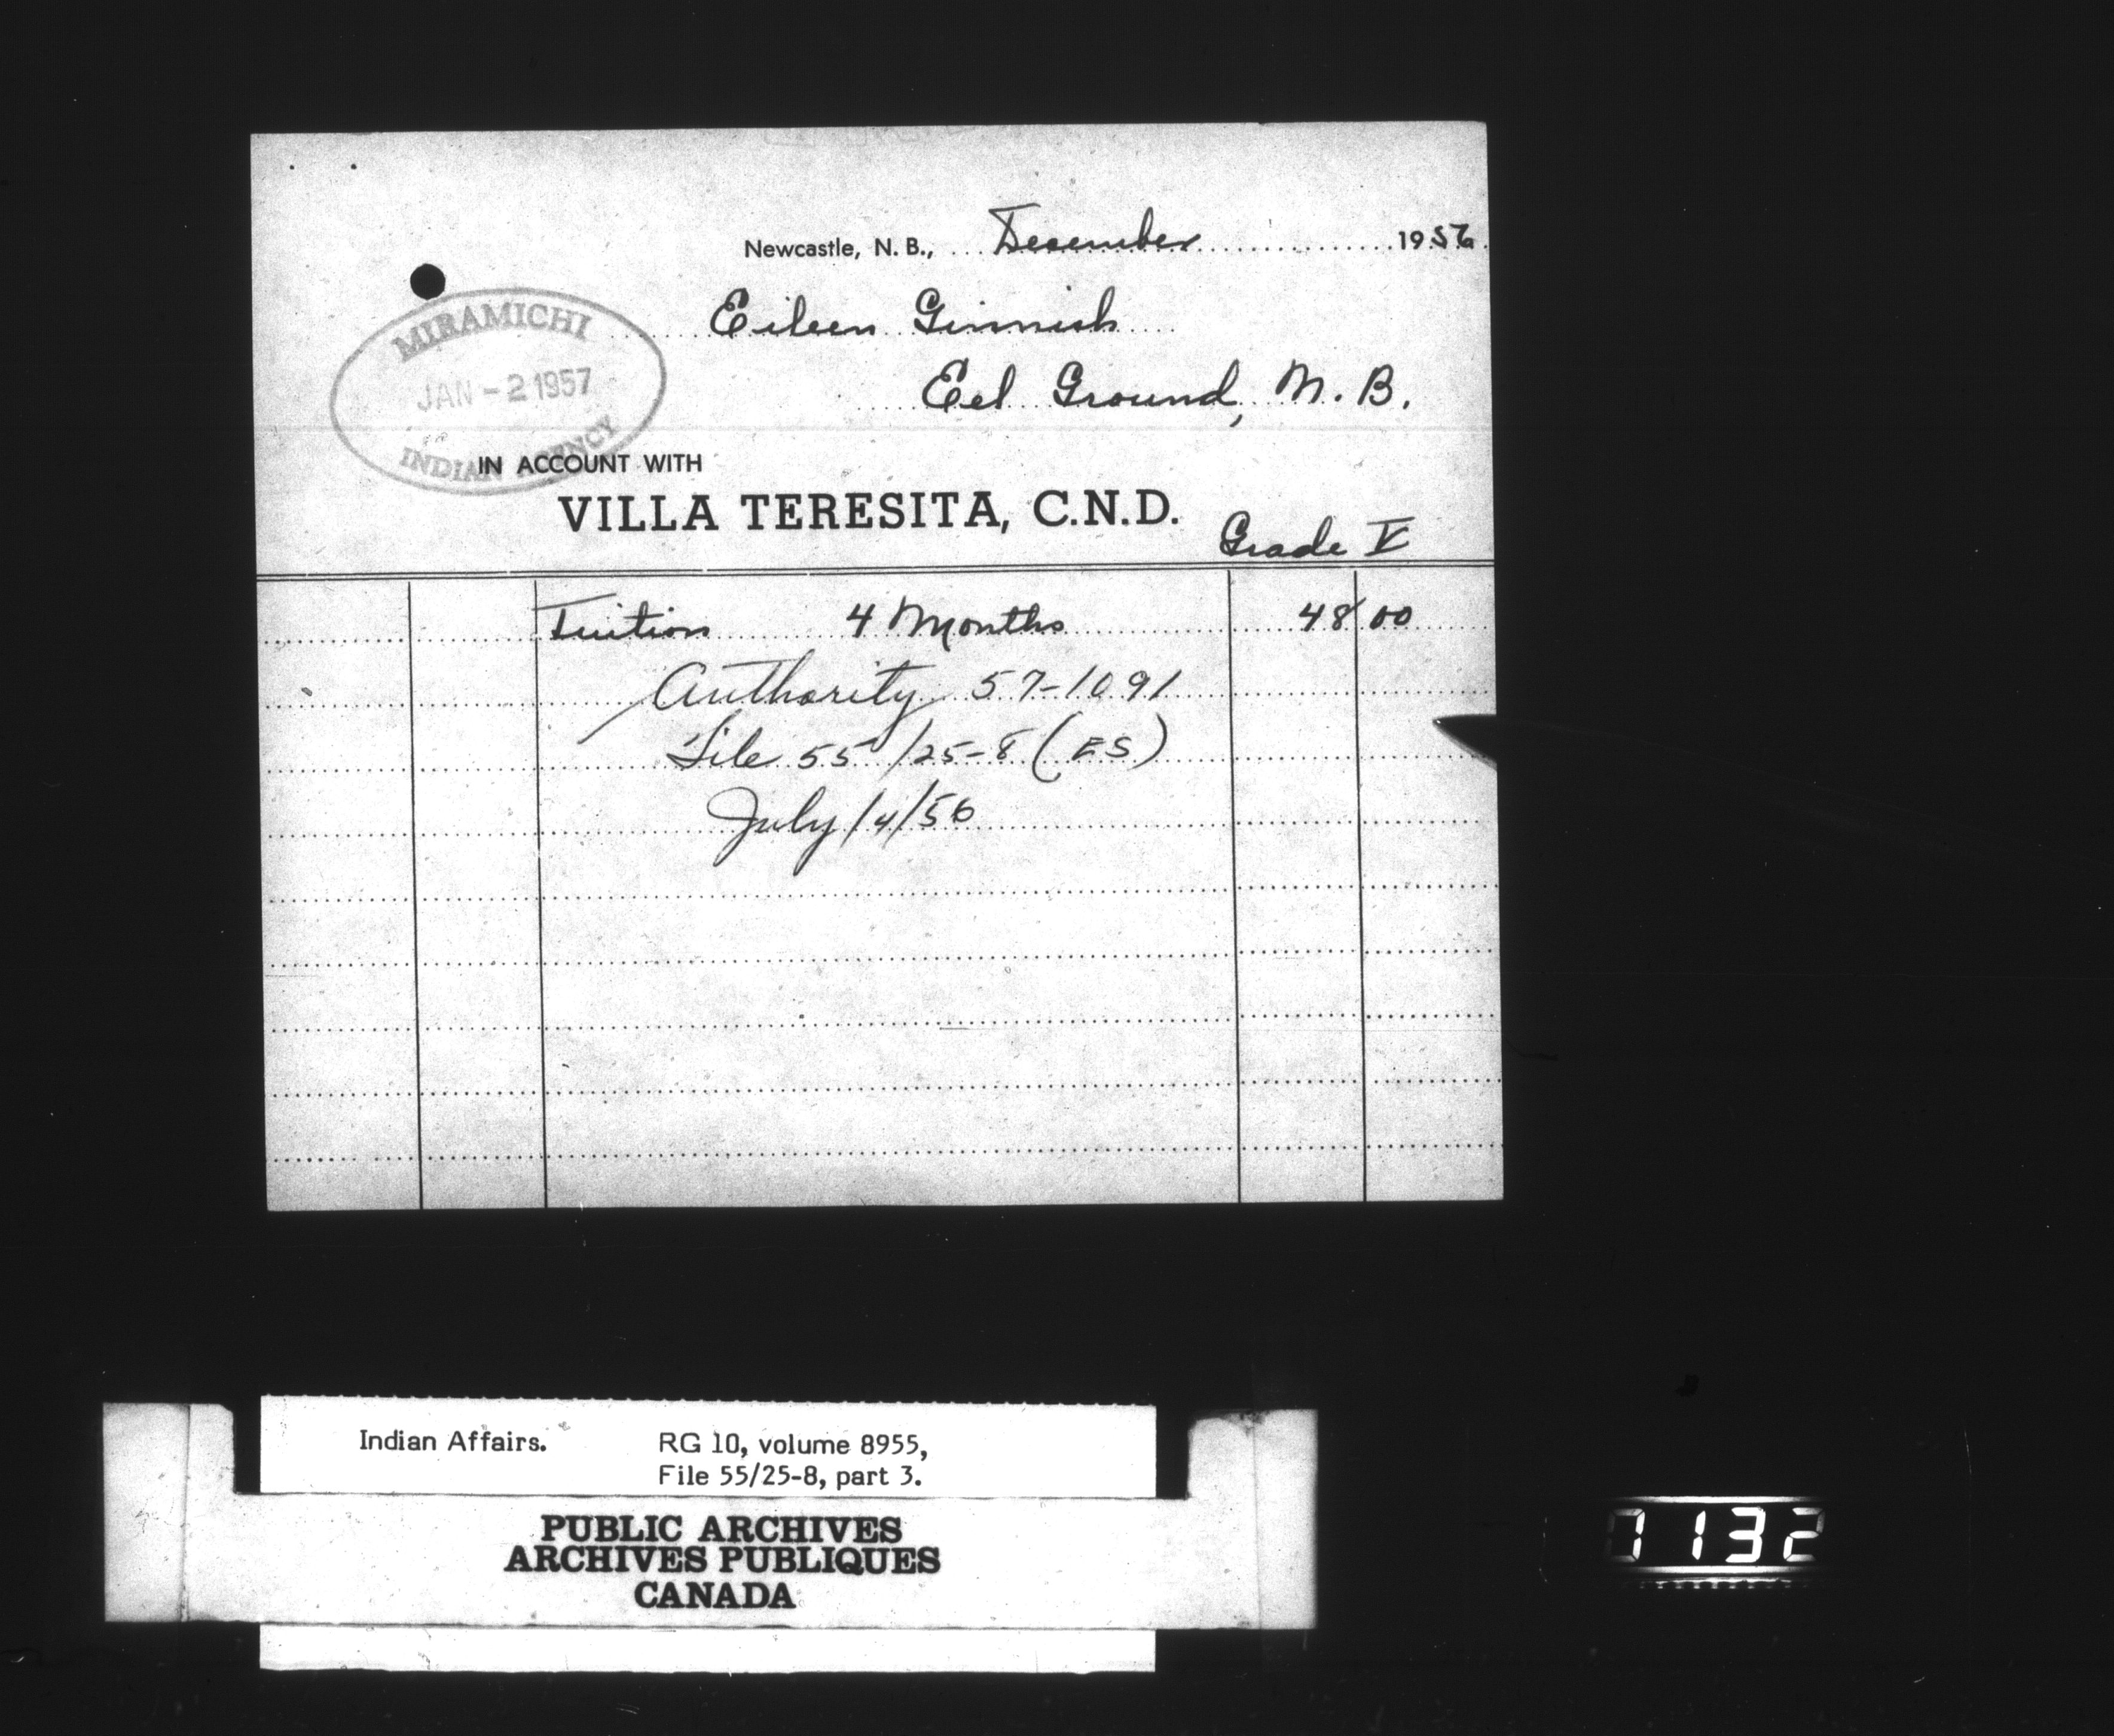 Newcastle, N. B., December 1956
Eileen Ginnish
Eel Ground, N. B.
MIRAMICHI
JAN - 2 1957
INDIAN AGENCY
IN ACCOUNT WITH
VILLA TERESITA, C.N.D.
Grade V
Tuition 4 Months 48 00
Authority 57-1091
File 55/25-8 (ES)
July /4/56
Indian Affairs. RG 10, volume 8955,
File 55/25-8, part 3.
PUBLIC ARCHIVES
ARCHIVES PUBLIQUES
CANADA
1132